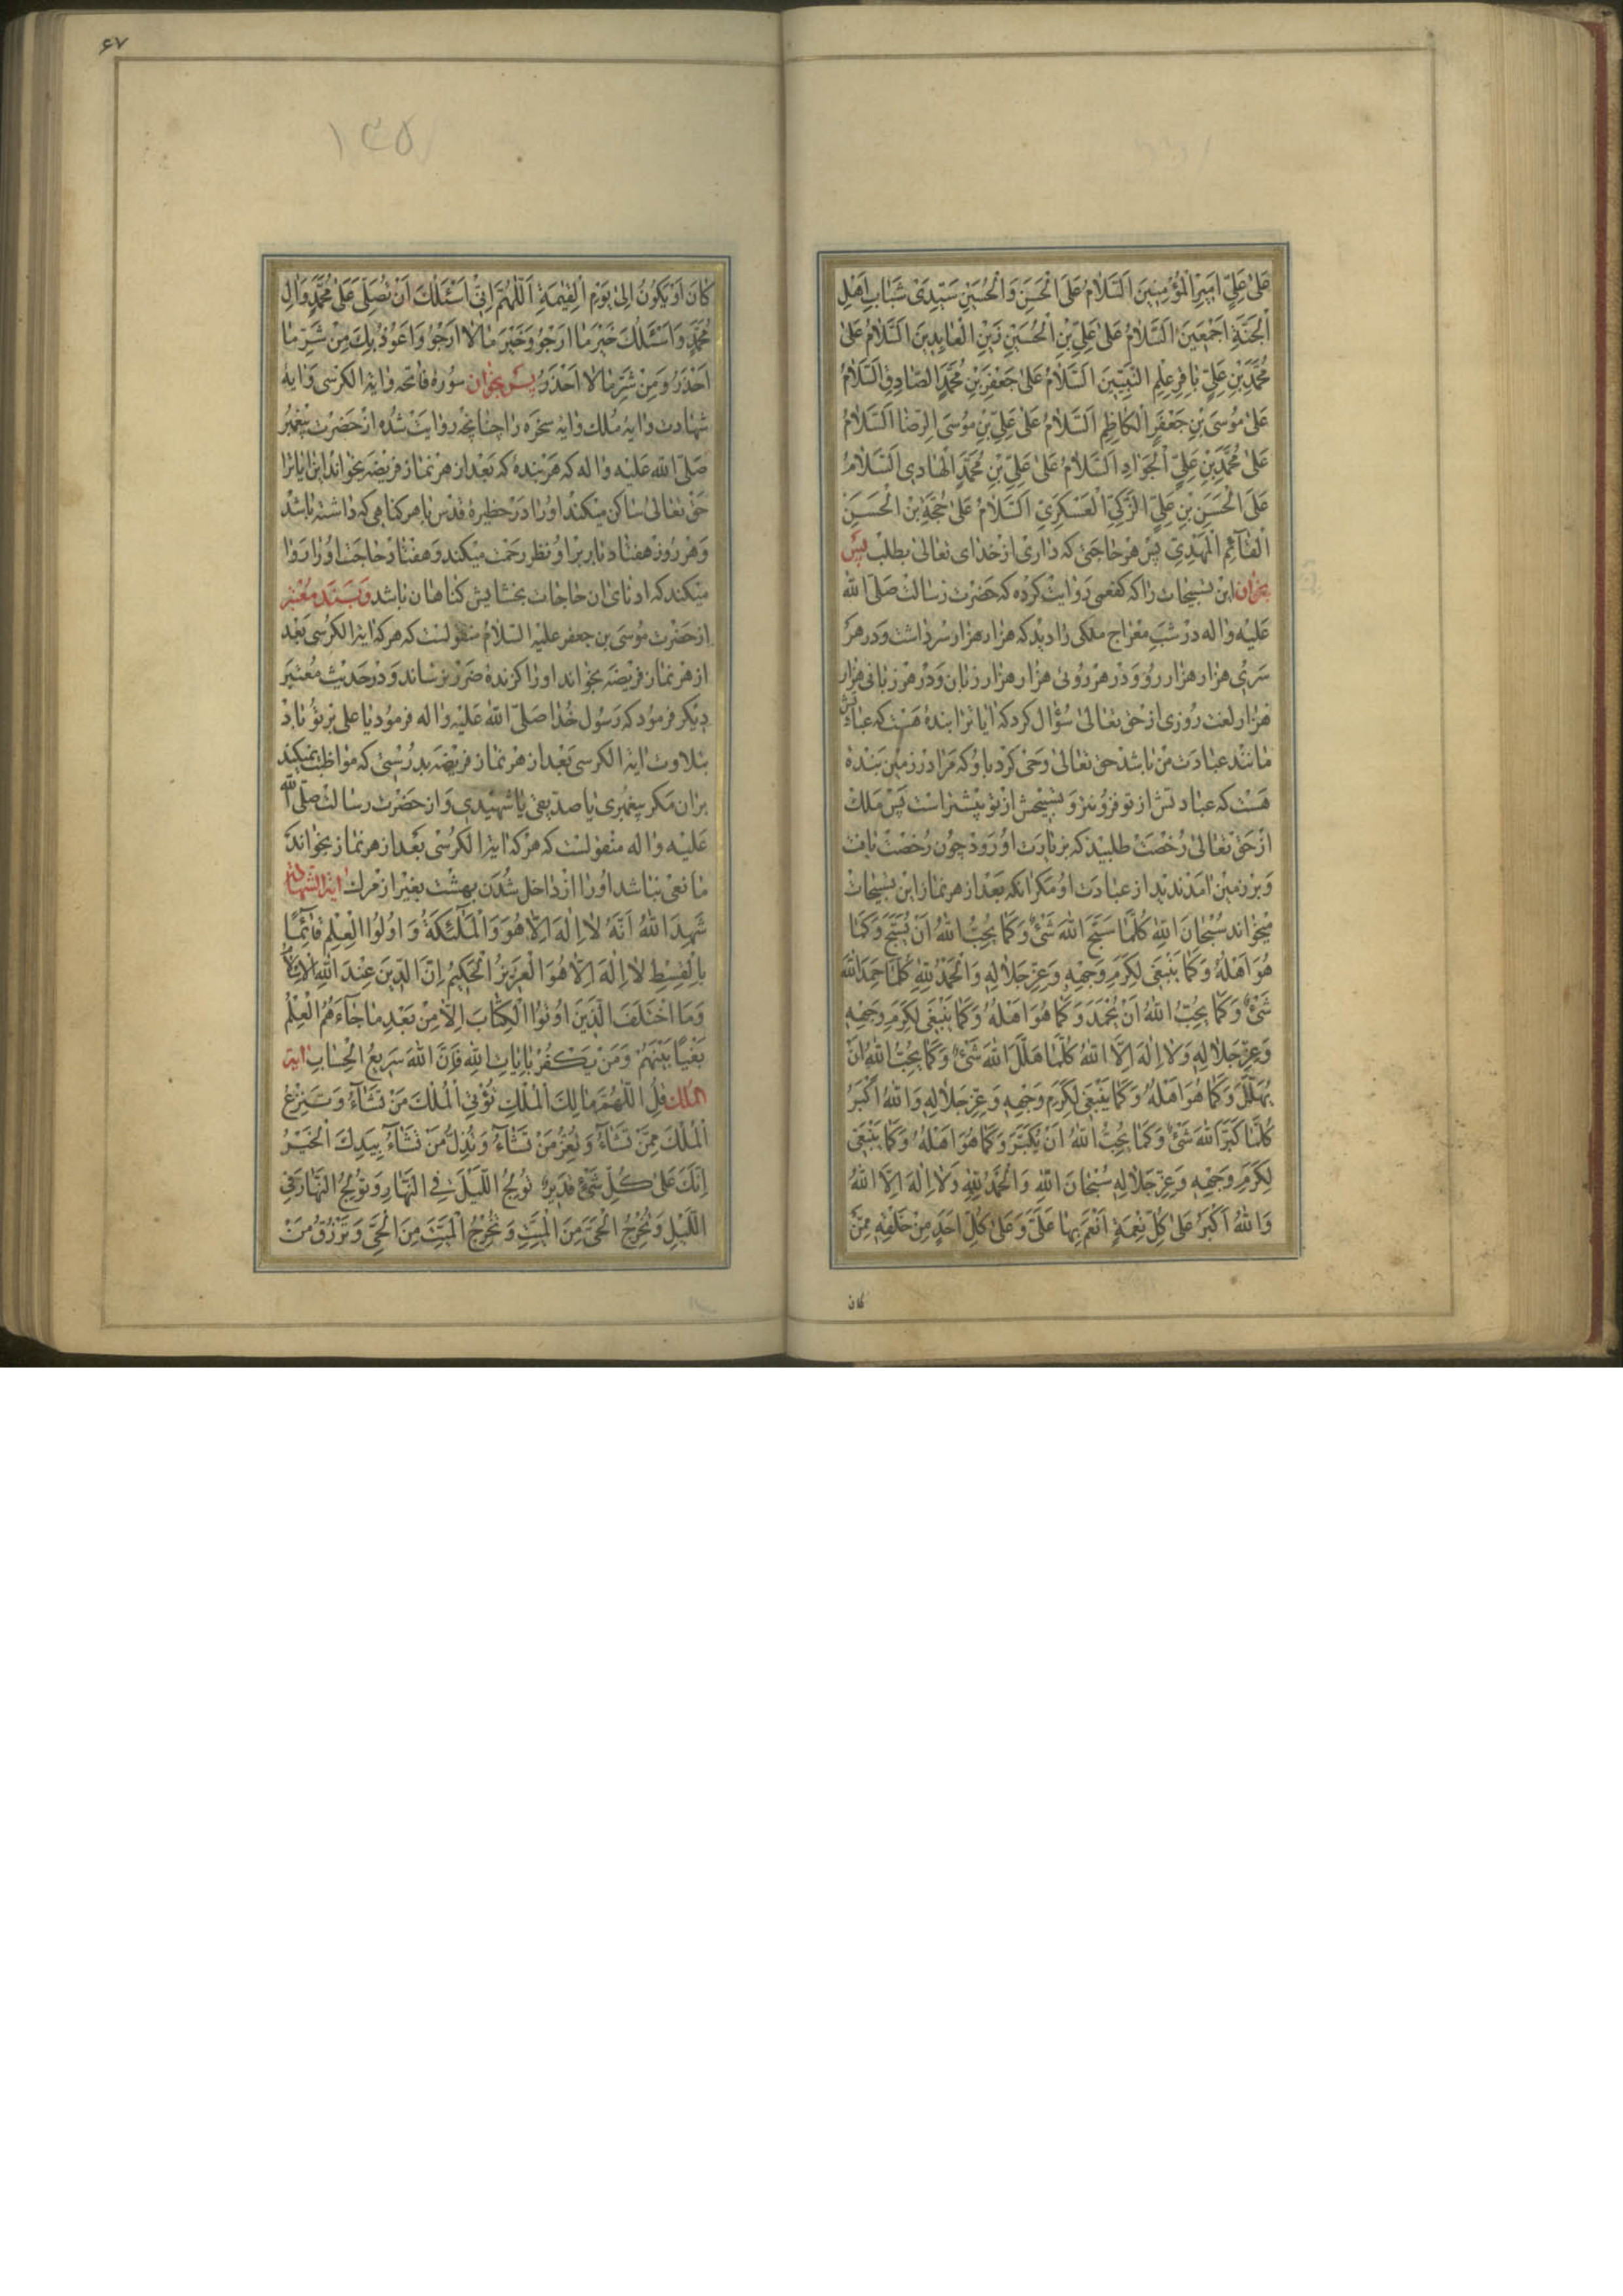 عَلىٰ عَلِيٍّ اَمِيرِ الْمُؤْمِنِينَ اَلسَّلامُ عَلَى الْحَسَنِ وَالْحُسَيْنِ سَيِّدَىْ شَبابِ اَهْلِ
الْجَنَّةِ اَجْمَعِينَ اَلسَّلامُ عَلىٰ عَلِيِّ بْنِ الْحُسَيْنِ زَيْنِ الْعابِدِينَ اَلسَّلامُ عَلىٰ
مُحَمَّدِ بْنِ عَلِيٍّ باقِرِ عِلْمِ النَّبِيِّينَ اَلسَّلامُ عَلىٰ جَعْفَرِ بْنِ مُحَمَّدٍ الصّادِقِ اَلسَّلامُ
عَلىٰ مُوسَى بْنِ جَعْفَرٍ الْكاظِمِ اَلسَّلامُ عَلىٰ عَلِيِّ بْنِ مُوسَى الرِّضا اَلسَّلامُ
عَلىٰ مُحَمَّدِ بْنِ عَلِيٍّ الْجَوادِ اَلسَّلامُ عَلىٰ عَلِيِّ بْنِ مُحَمَّدٍ الْهادِي اَلسَّلامُ
عَلَى الْحَسَنِ بْنِ عَلِيٍّ الزَّكِيِّ الْعَسْكَرِيِّ اَلسَّلامُ عَلىٰ حُجَّةِ بْنِ الْحَسَنِ
الْقآئِمِ الْمَهْدِيِّ پس هر حاجتى كه دارى از خداى تعالى بطلب پس
بخوان اين تسبيحات را كه كفعمى روايت كرده كه حضرت رسالت صلّى الله
عليه واله در شب معراج ملكى را ديد كه هزار هزار سر داشت و در هر
سرى هزار هزار رو و در هر روئى هزار هزار زبان و در هر زبانى هزار
هزار لغت روزى از حق تعالى سؤال كرد كه ايا ترا بندهٔ هست كه عبادتش
مانند عبادت من باشد حق تعالى وحى كرد باو كه مرا در زمين بندهٔ
هست كه عبادتش از تو فزونتر و تسبيحش از تو بيشتر است پس ملك
از حق تعالى رخصت طلبيد كه بزيارت او رود چون رخصت يافت
و بر زمين امد نديد از عبادت او مكر انكه بعد از هر نماز اين تسبيحات
ميخواند سُبْحانَ اللهِ كُلَّما سَبَّحَ اللهَ شَىْءٌ وَكَما يُحِبُّ اللهُ اَنْ يُسَبَّحَ وَكَما
هُوَ اَهْلُهُ وَكَما يَنْبَغى لِكَرَمِ وَجْهِهِ وَعِزِّ جَلالِهِ وَالْحَمْدُ لِلّٰهِ كُلَّما حَمِدَ اللهَ
شَىْءٌ وَكَما يُحِبُّ اللهُ اَنْ يُحْمَدَ وَكَما هُوَ اَهْلُهُ وَكَما يَنْبَغى لِكَرَمِ وَجْهِهِ
وَعِزِّ جَلالِهِ وَلا اِلٰهَ اِلَّا اللهُ كُلَّما هَلَّلَ اللهَ شَىْءٌ وَكَما يُحِبُّ اللهُ اَنْ
يُهَلَّلَ وَكَما هُوَ اَهْلُهُ وَكَما يَنْبَغى لِكَرَمِ وَجْهِهِ وَعِزِّ جَلالِهِ وَاللهُ اَكْبَرُ
كُلَّما كَبَّرَ اللهَ شَىْءٌ وَكَما يُحِبُّ اللهُ اَنْ يُكَبَّرَ وَكَما هُوَ اَهْلُهُ وَكَما يَنْبَغى
لِكَرَمِ وَجْهِهِ وَعِزِّ جَلالِهِ سُبْحانَ اللهِ وَالْحَمْدُ لِلّٰهِ وَلا اِلٰهَ اِلَّا اللهُ
وَاللهُ اَكْبَرُ عَلىٰ كُلِّ نِعْمَةٍ اَنْعَمَ بِها عَلَىَّ وَعَلىٰ كُلِّ اَحَدٍ مِنْ خَلْقِهِ مِمَّنْ
كان
۶۷
۱۳۵
كانَ اَوْ يَكُونُ اِلىٰ يَوْمِ الْقِيٰمَةِ اَللّٰهُمَّ اِنّى اَسْئَلُكَ اَنْ تُصَلِّىَ عَلىٰ مُحَمَّدٍ وَالِ
مُحَمَّدٍ وَاَسْئَلُكَ خَيْرَ ما اَرْجُو وَخَيْرَ ما لا اَرْجُو وَاَعُوذُ بِكَ مِنْ شَرِّ ما
اَحْذَرُ وَمِنْ شَرِّ ما لا اَحْذَرُ پس بخوان سورهٔ فاتحه و اية الكرسى و ايهٔ
شهادت و ايهٔ ملك و ايهٔ سخره را چنانچه روايت شده از حضرت پيغمبر
صلّى الله عليه واله كه هر بندهٔ كه بعد از هر نماز فريضه بخواند اين ايات را
حق تعالى ساكن ميكند او را در حظيرهٔ قدس با هر كناهى كه داشته باشد
و هر روز هفتاد بار بر او نظر رحمت ميكند و هفتاد حاجت او را روا
ميكند كه ادناى ان حاجات بخشايش كناهان باشد و بسند معتبر
از حضرت موسى بن جعفر عليه السلام منقولست كه هر كه اية الكرسى بعد
از هر نماز فريضه بخواند او را كزندهٔ ضرر نرساند و در حديث معتبر
ديكر فرمود كه رسول خدا صلّى الله عليه واله فرمود يا على بر تو باد
بتلاوت اية الكرسى بعد از هر نماز فريضه بدرستى كه مواظبت نميكند
بران مكر پيغمبرى يا صديقى يا شهيدى و از حضرت رسالت صلّى الله
عليه واله منقولست كه هر كه اية الكرسى بعد از هر نماز بخواند
مانعى نباشد او را از داخل شدن بهشت بغير از مرك اية الشهادة
شَهِدَ اللهُ اَنَّهُ لا اِلٰهَ اِلّا هُوَ وَالْمَلٰٓئِكَةُ وَاُولُوا الْعِلْمِ قآئِمًا
بِالْقِسْطِ لا اِلٰهَ اِلّا هُوَ الْعَزِيزُ الْحَكِيمُ اِنَّ الدِّينَ عِنْدَ اللهِ الْاِسْلامُ
وَمَا اخْتَلَفَ الَّذِينَ اُوتُوا الْكِتابَ اِلّا مِنْ بَعْدِ ما جآءَهُمُ الْعِلْمُ
بَغْيًا بَيْنَهُمْ وَمَنْ يَكْفُرْ بِاياتِ اللهِ فَاِنَّ اللهَ سَرِيعُ الْحِسابِ اية
الملك قُلِ اللّٰهُمَّ مالِكَ الْمُلْكِ تُؤْتِى الْمُلْكَ مَنْ تَشآءُ وَتَنْزِعُ
الْمُلْكَ مِمَّنْ تَشآءُ وَتُعِزُّ مَنْ تَشآءُ وَتُذِلُّ مَنْ تَشآءُ بِيَدِكَ الْخَيْرُ
اِنَّكَ عَلىٰ كُلِّ شَىْءٍ قَدِيرٌ تُولِجُ اللَّيْلَ فِى النَّهارِ وَتُولِجُ النَّهارَ فِى
اللَّيْلِ وَتُخْرِجُ الْحَىَّ مِنَ الْمَيِّتِ وَتُخْرِجُ الْمَيِّتَ مِنَ الْحَىِّ وَتَرْزُقُ مَنْ